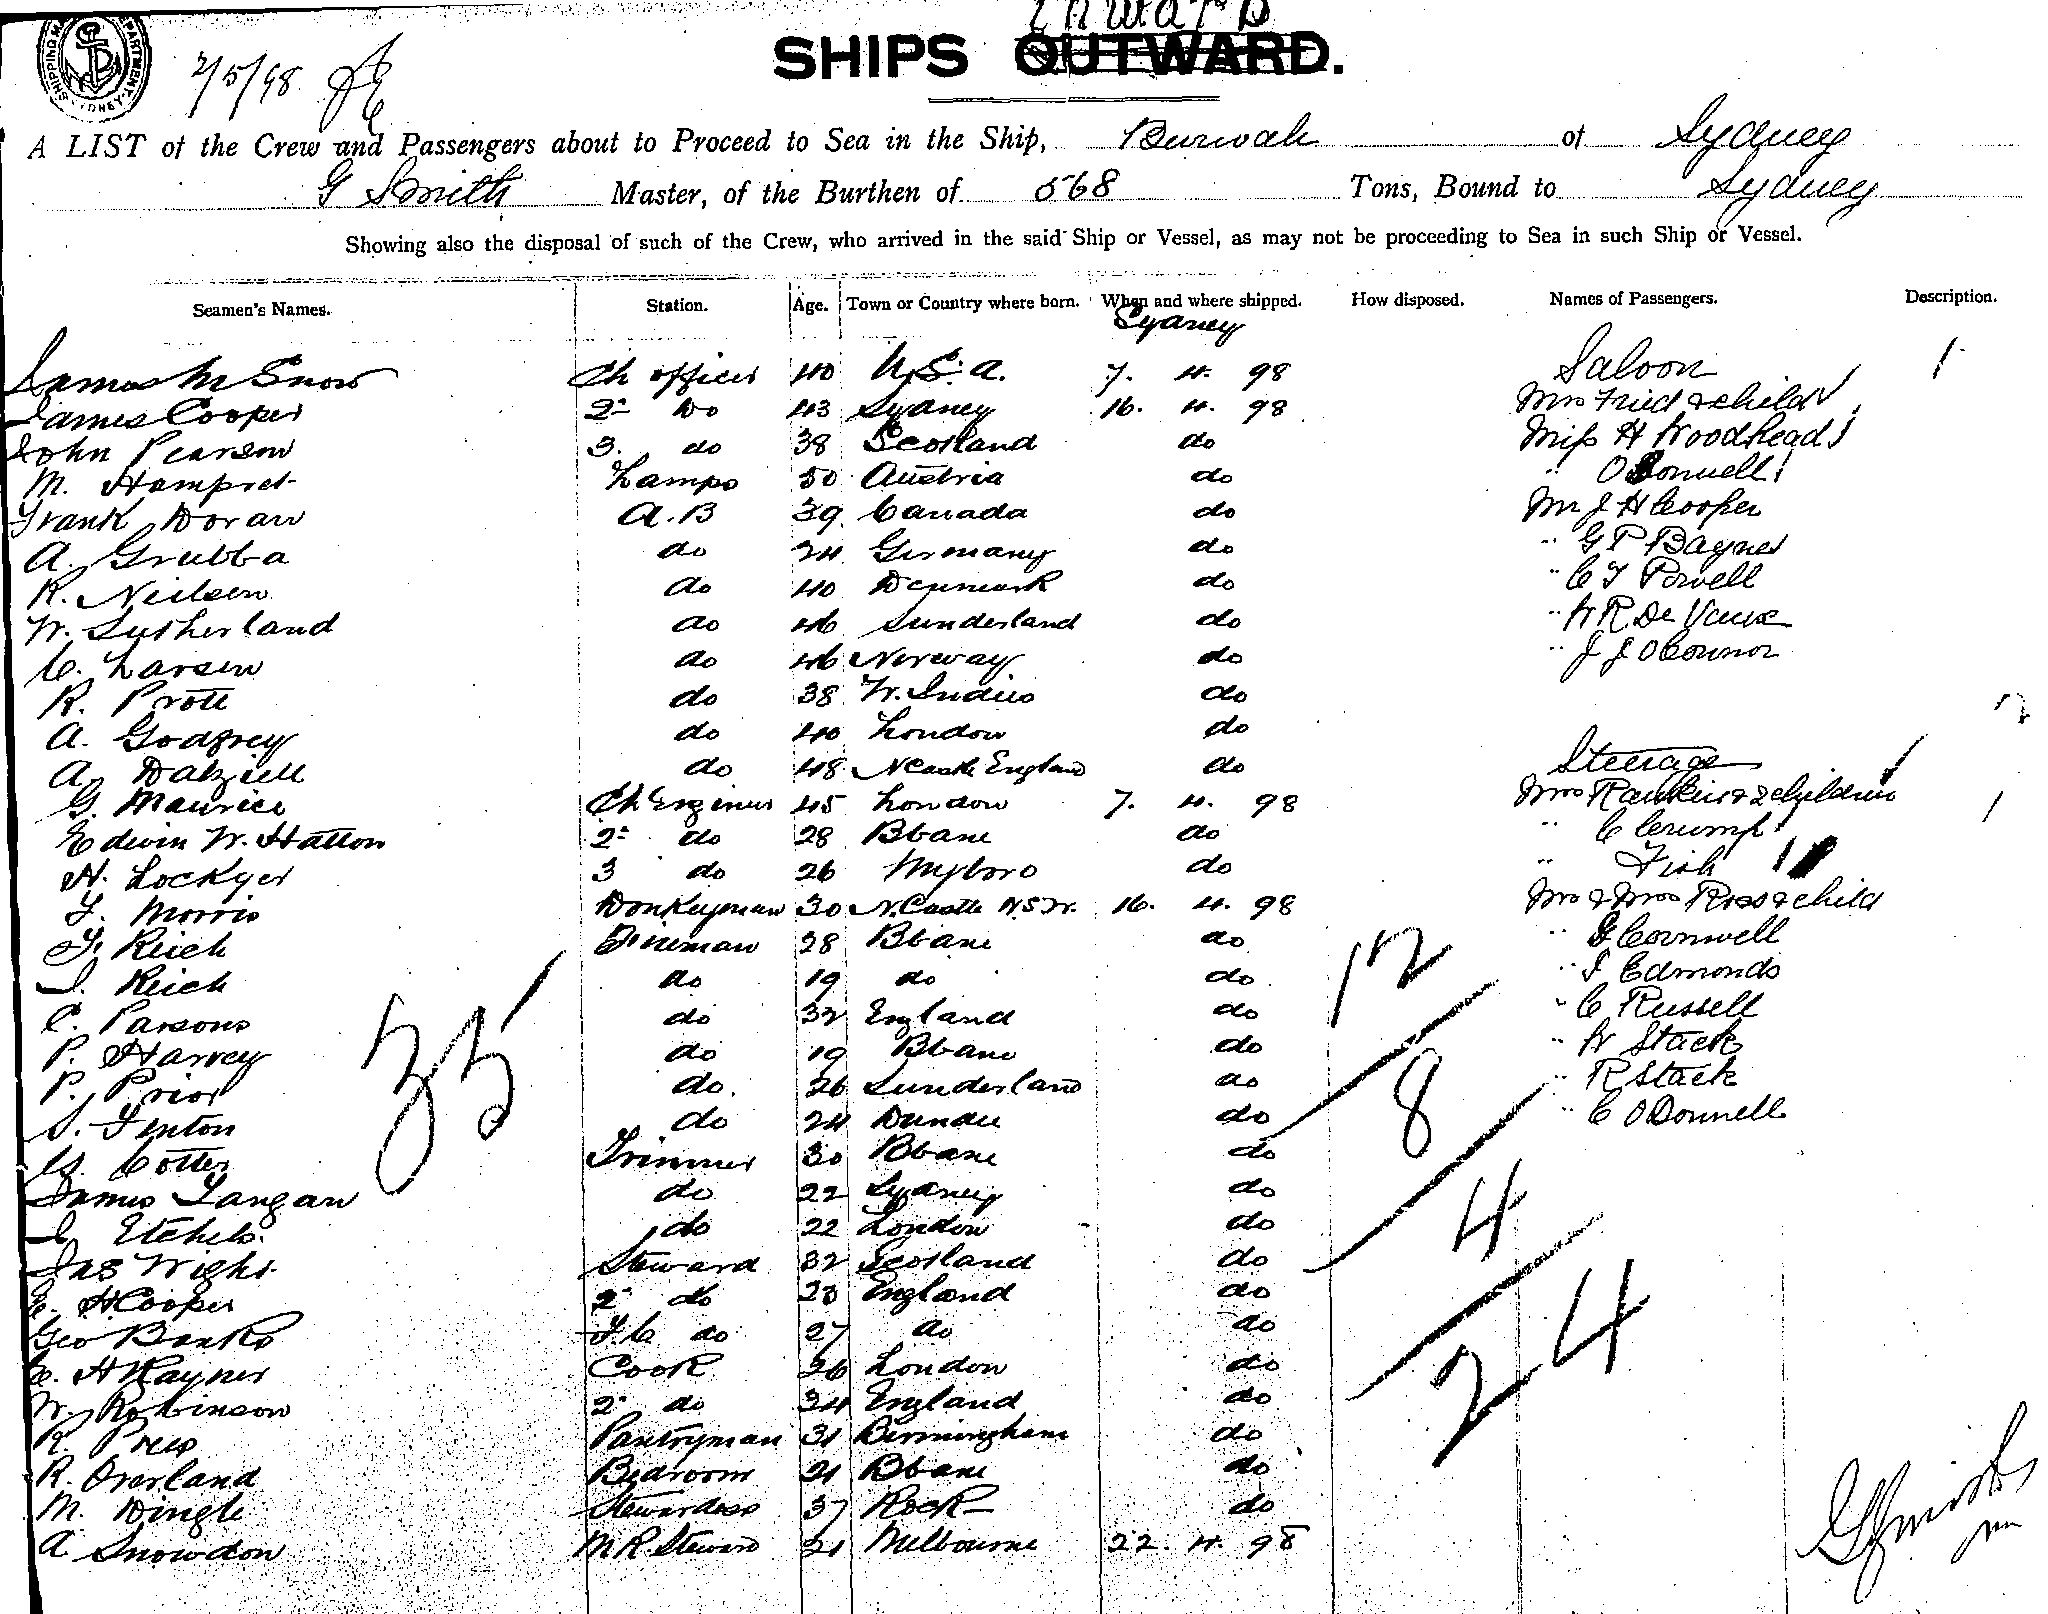 Inward
SHIPS OUTWARD.
2/5/98
A LIST of the Crew and Passengers about to Proceed to Sea in the Ship, Burwah of Sydney
G Smith Master, of the Burthen of 568 Tons, Bound to Sydney
Showing also the disposal of such of the Crew, who arrived in the said Ship or Vessel, as may not be proceeding to Sea in such Ship or Vessel.
Seamen's Names. Station. Age. Town or Country where born. When and where shipped. How disposed. Names of Passengers. Description.
Sydney
James M Snow Ch officer 40 U.S.a. 7. 4. 98 Saloon 1
James Cooper 2 Do 43 Sydney 16. 4. 98 Mrs Fried & child
John Pearson 3. do 38 Scotland do Miss H Woodhead
M. Lamps 50 Austria do " O Donnell
Frank Doran A.B 39 Canada do Mr J H Cooper
A. Grubba do 24 Germany do " G P Baynes
R. Neilsen do 40 Denmark do " C F Powell
W. Sutherland do 46 Sunderland do " W R De Vaux
C. Larsen do 46 Norway do " J J OConnor
R. Prott do 38 W. Indies do
A. Godfrey do 40 London do
A. Dalziell do 48 NCastle England do Steerage
G. Maurice Ch Engineer 45 London 7. 4. 98 Mrs Rankin & 2 children 1
Edwin W. Hatton 2 do 28 Bbane do " C Crump
H. Lockyer 3 do 26 Myboro do " Fish
F. Morris Donkeyman 30 N.Castle N.S.W. 16. 4. 98 Mr & Mrs Ross & child
F. Reich Fireman 28 Bbane do " G Cornwell
J. Reich do 19 do do " Edmonds
C. Parsons do 32 England do " C Russell
P. Harvey do 19 Bbane do " W Stack
P. Prior do. 26 Sunderland do " R Stack
S. Fenton do 24 Dundee do " C ODonnell
Cotter Trimmer 30 Bbane do
James Langan do 22 Sydney do
J Etchels. do 22 London do
Jas Wight Steward 32 Scotland do
E. H Cooper 2 do 23 England do
Geo Banks F.C do 27 do do
C. H Rayner Cook 26 London do
W. Robinson 2 do 34 England do
R. Pantryman 31 Birmingham do
R. Overland Bedroom 21 Bbane do
M. Dingle Stewardess 37 Rock do
A Snowdon M.R. Steward 21 Melbourne 22. 4. 98
35
12
8
4
24
G Smith